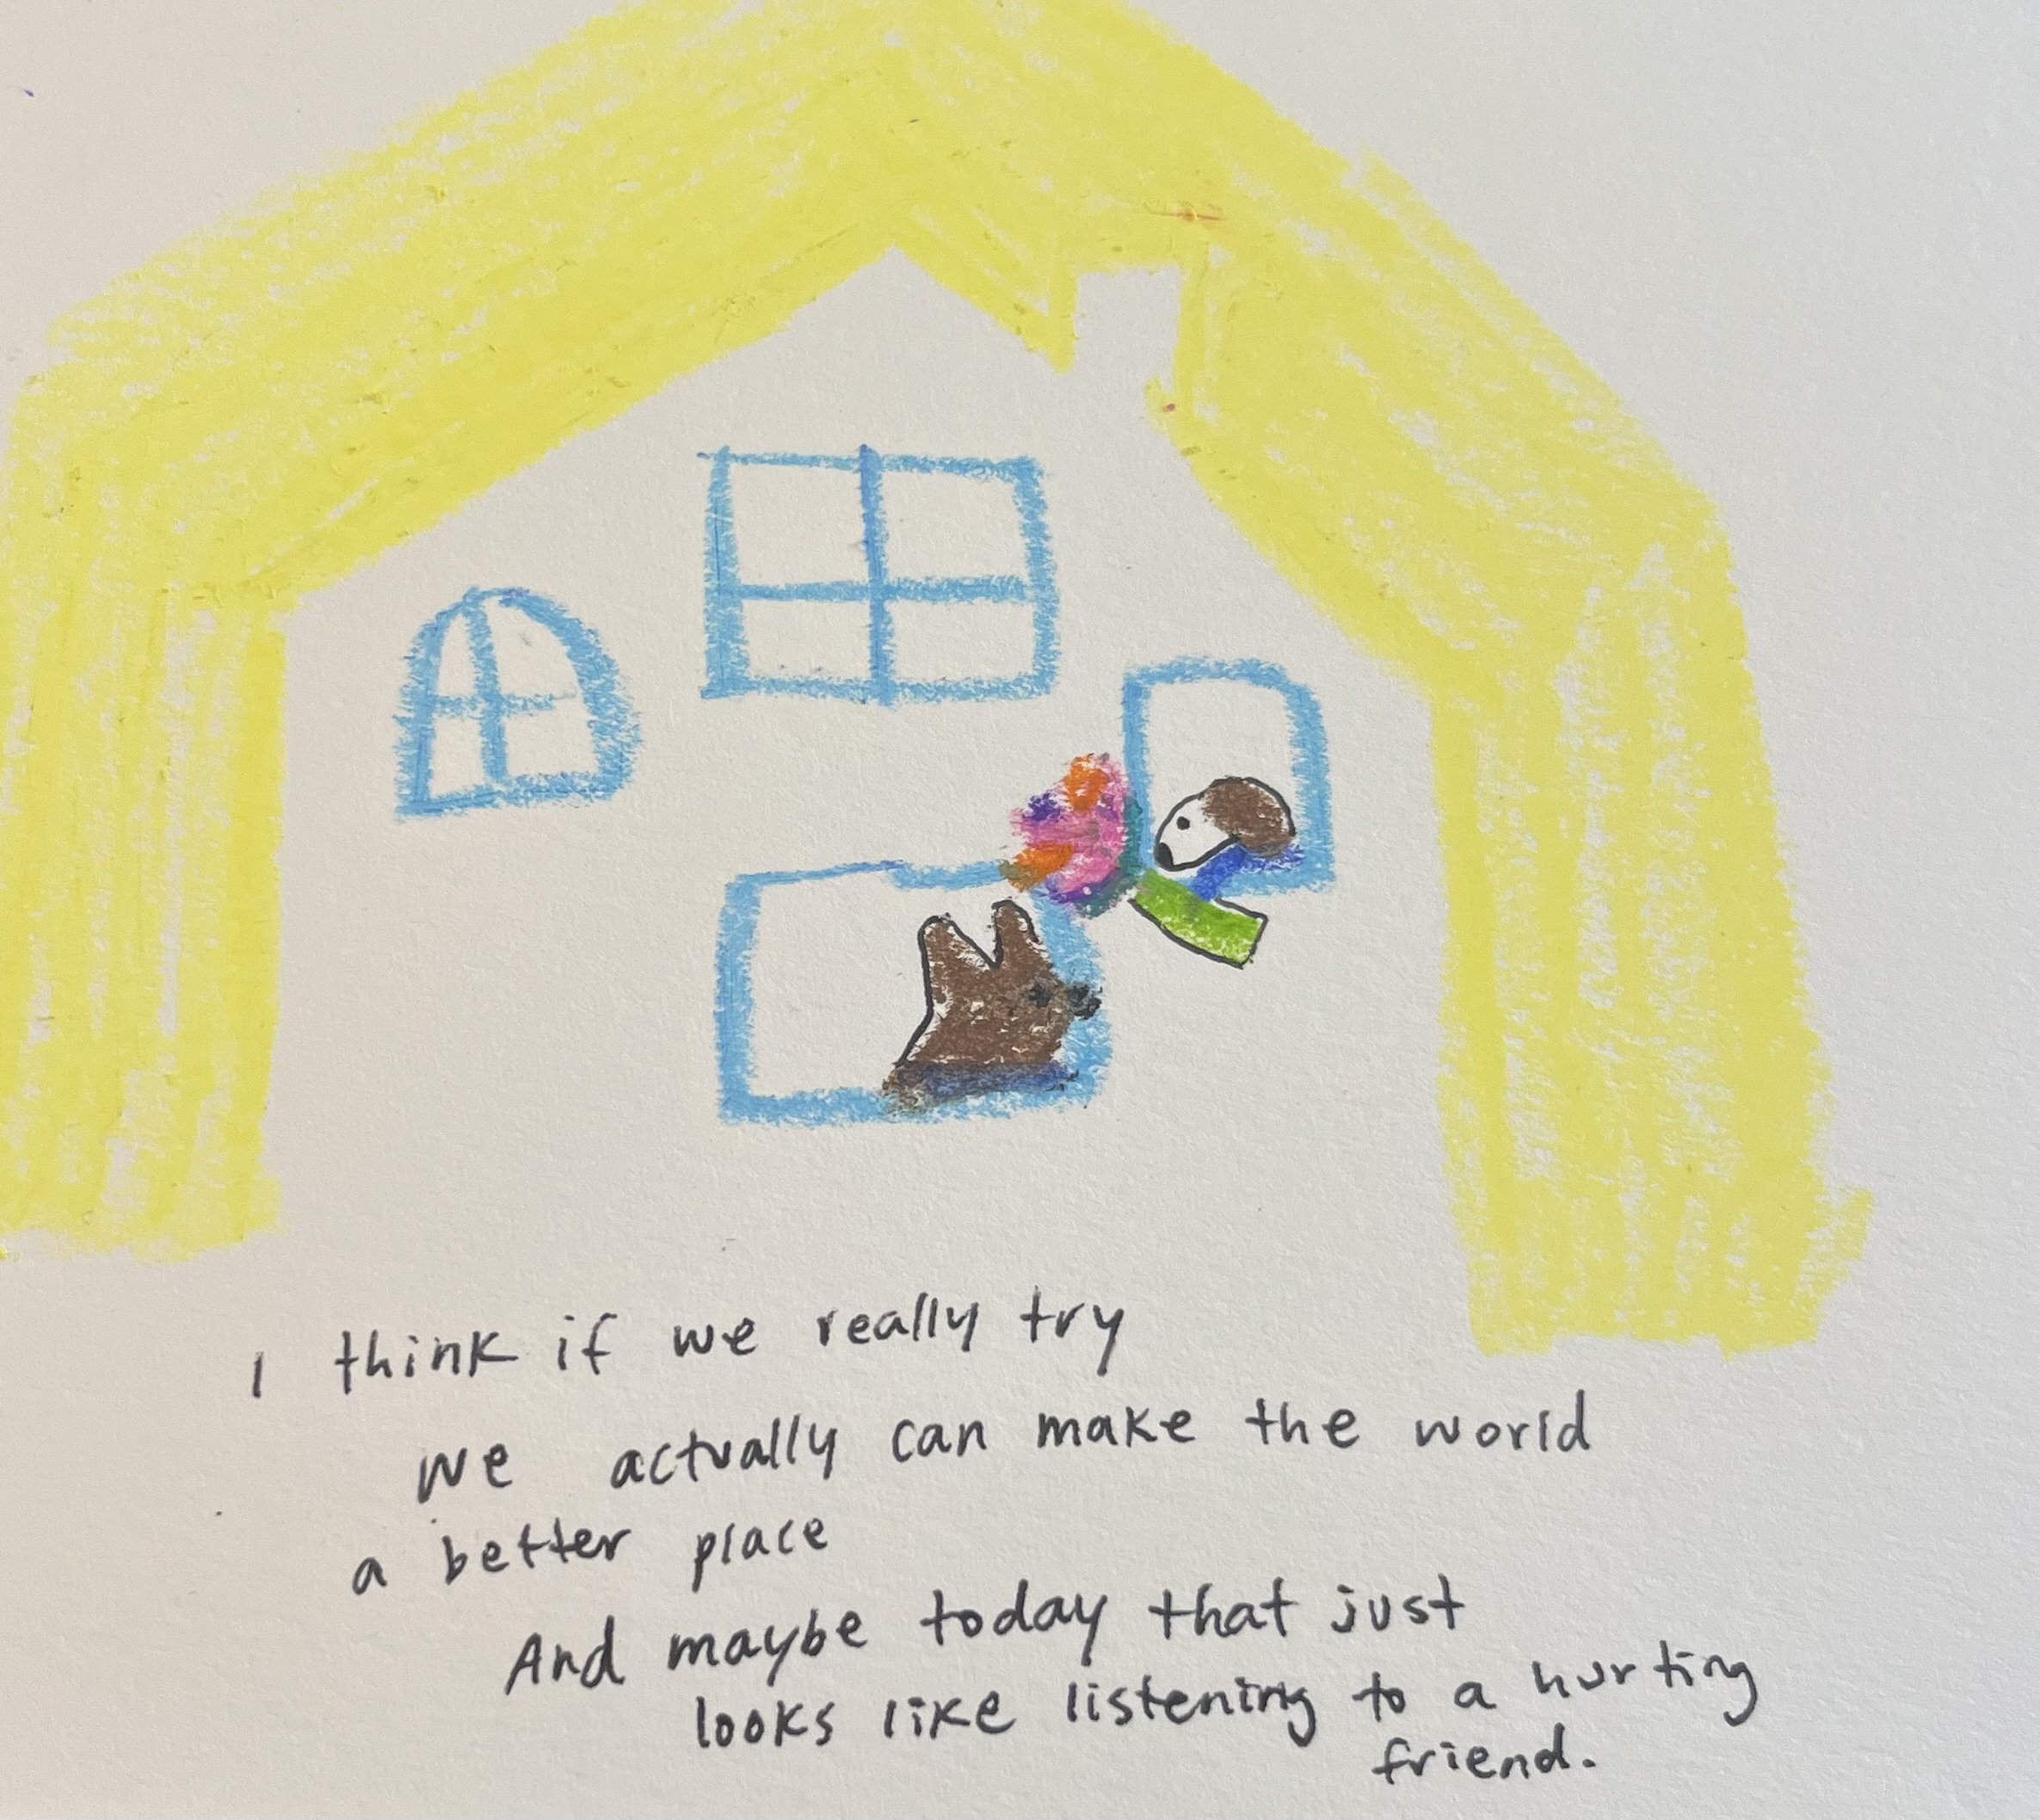 I think if we really try
we actually can make the world
a better place
And maybe today that just
looks like listening to a hurting
friend.